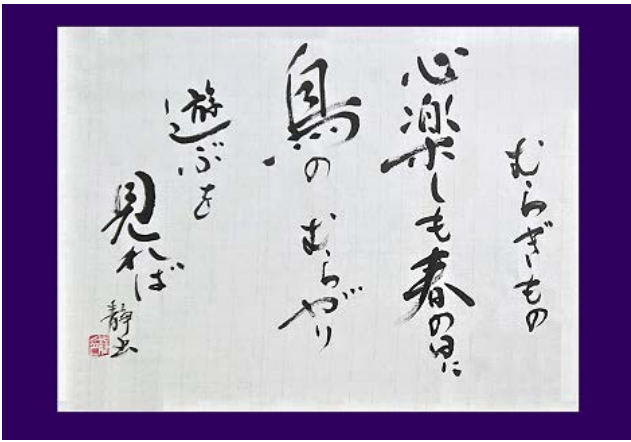 むらぎもの
心楽しも春の日に
鳥のむらがり
遊ぶを
見れば
静出